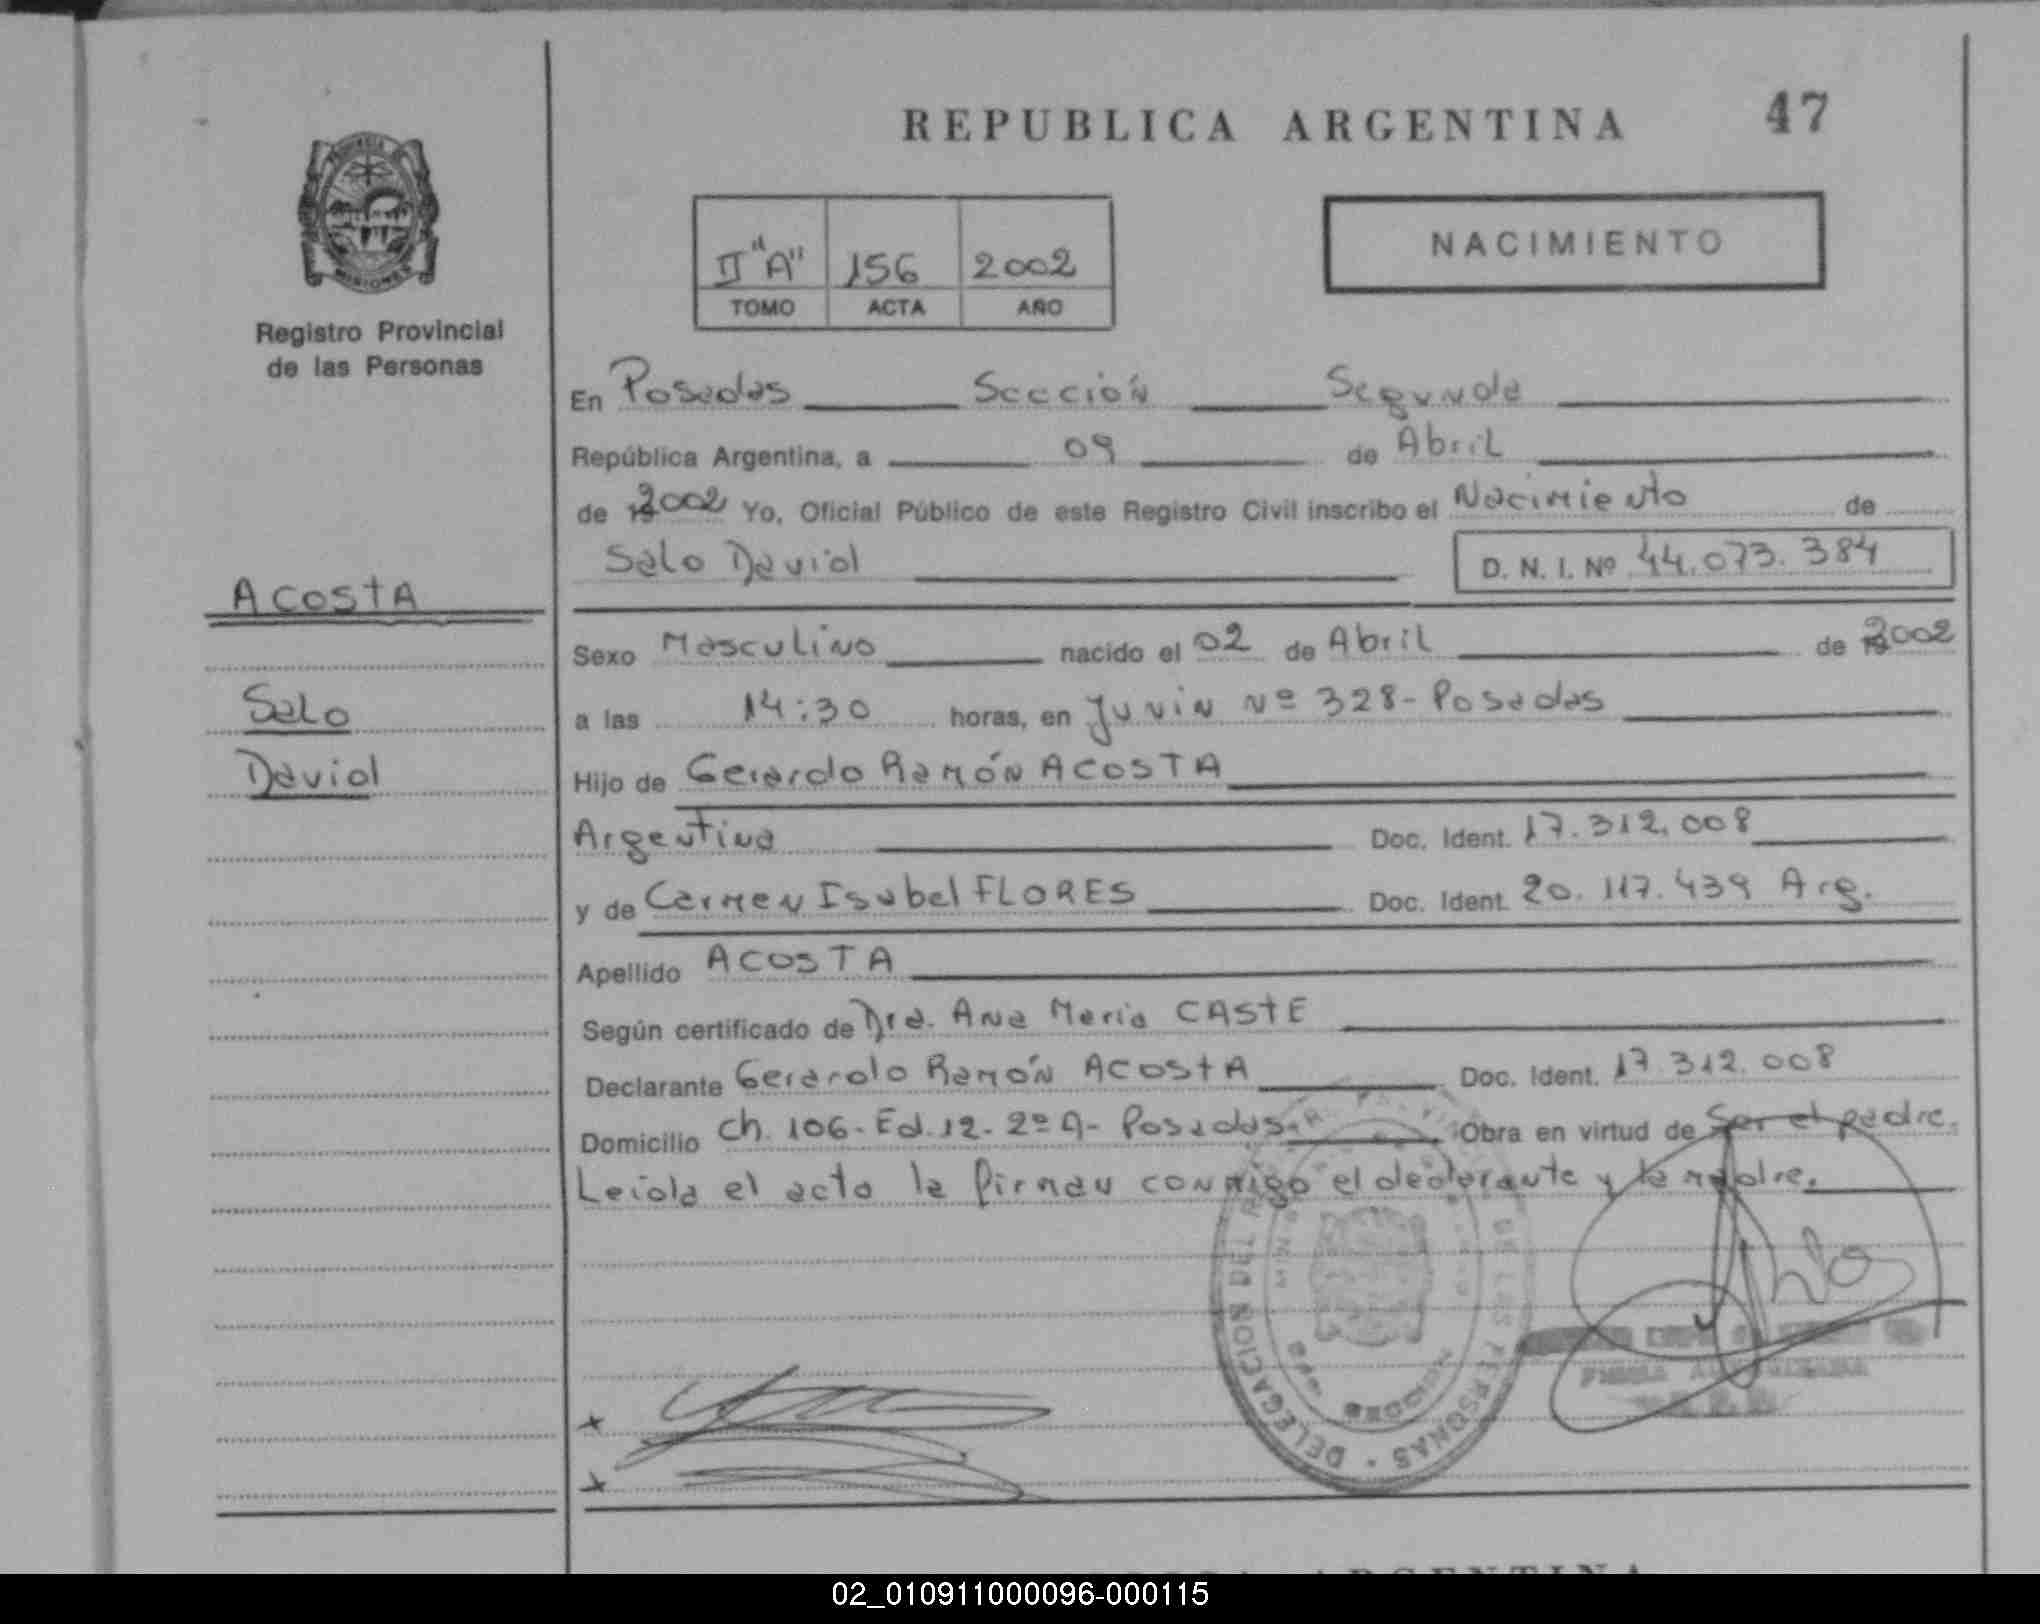 REPUBLICA ARGENTINA 47
PROVINCIA DE
MISIONES
Registro Provincial
de las Personas
II "A" 156 2002
TOMO ACTA AÑO
NACIMIENTO
En Posadas Sección Segunda
República Argentina, a 09 de Abril
de 2002 Yo, Oficial Público de este Registro Civil inscribo el Nacimiento de
Salo David D. N. I. Nº 44.073.384
ACOSTA
Salo
David
Sexo Masculino nacido el 02 de Abril de 2002
a las 14:30 horas, en Junin Nº 328-Posadas
Hijo de Gerardo Ramón ACOSTA
Argentina Doc. Ident. 17.312.008
y de Carmen Isabel FLORES Doc. Ident. 20.117.439 Arg.
Apellido ACOSTA
Según certificado de Dra. Ana Maria CASTE
Declarante Gerardo Ramón ACOSTA Doc. Ident. 17.312.008
Domicilio Ch. 106-Ed.12-2º A- Posadas. Obra en virtud de Ser el padre.
Leida el acta la firman conmigo el declarante y la madre.
DELEGACION DEL DE LAS PERSONAS
SECCION
FIRMA
02_010911000096-000115